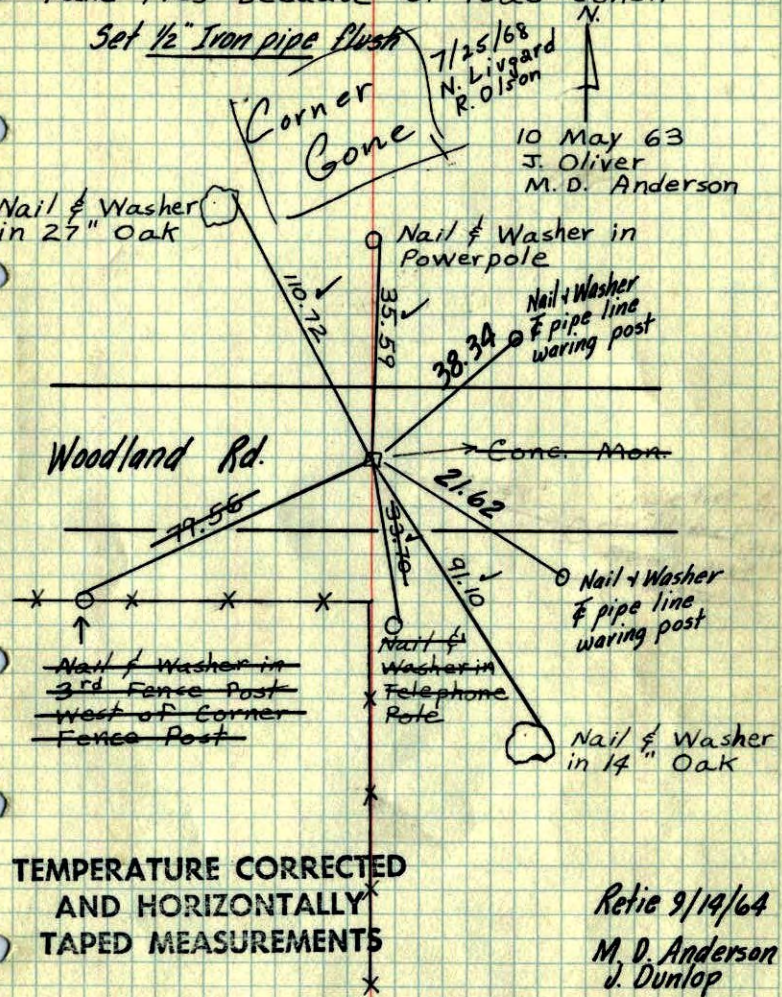 Set 1/2" Iron pipe flush
7/25/68
N. Livgard
R. Olson
N.
Corner
Gone
10 May 63
J. Oliver
M. D. Anderson
Nail & Washer
in 27" Oak
Nail & Washer in
Powerpole
110.72 ✓
35.59 ✓
38.34
Nail & Washer
℄ pipe line
waring post
Woodland Rd.
Conc. Mon.
79.56
33.70 ✓
91.10 ✓
21.62
Nail & Washer
℄ pipe line
waring post
Nail & Washer in
3rd Fence Post
West of Corner
Fence Post
Nail &
Washer in
Telephone
Pole
Nail & Washer
in 14" Oak
TEMPERATURE CORRECTED
AND HORIZONTALLY
TAPED MEASUREMENTS
Retie 9/14/64
M. D. Anderson
J. Dunlop